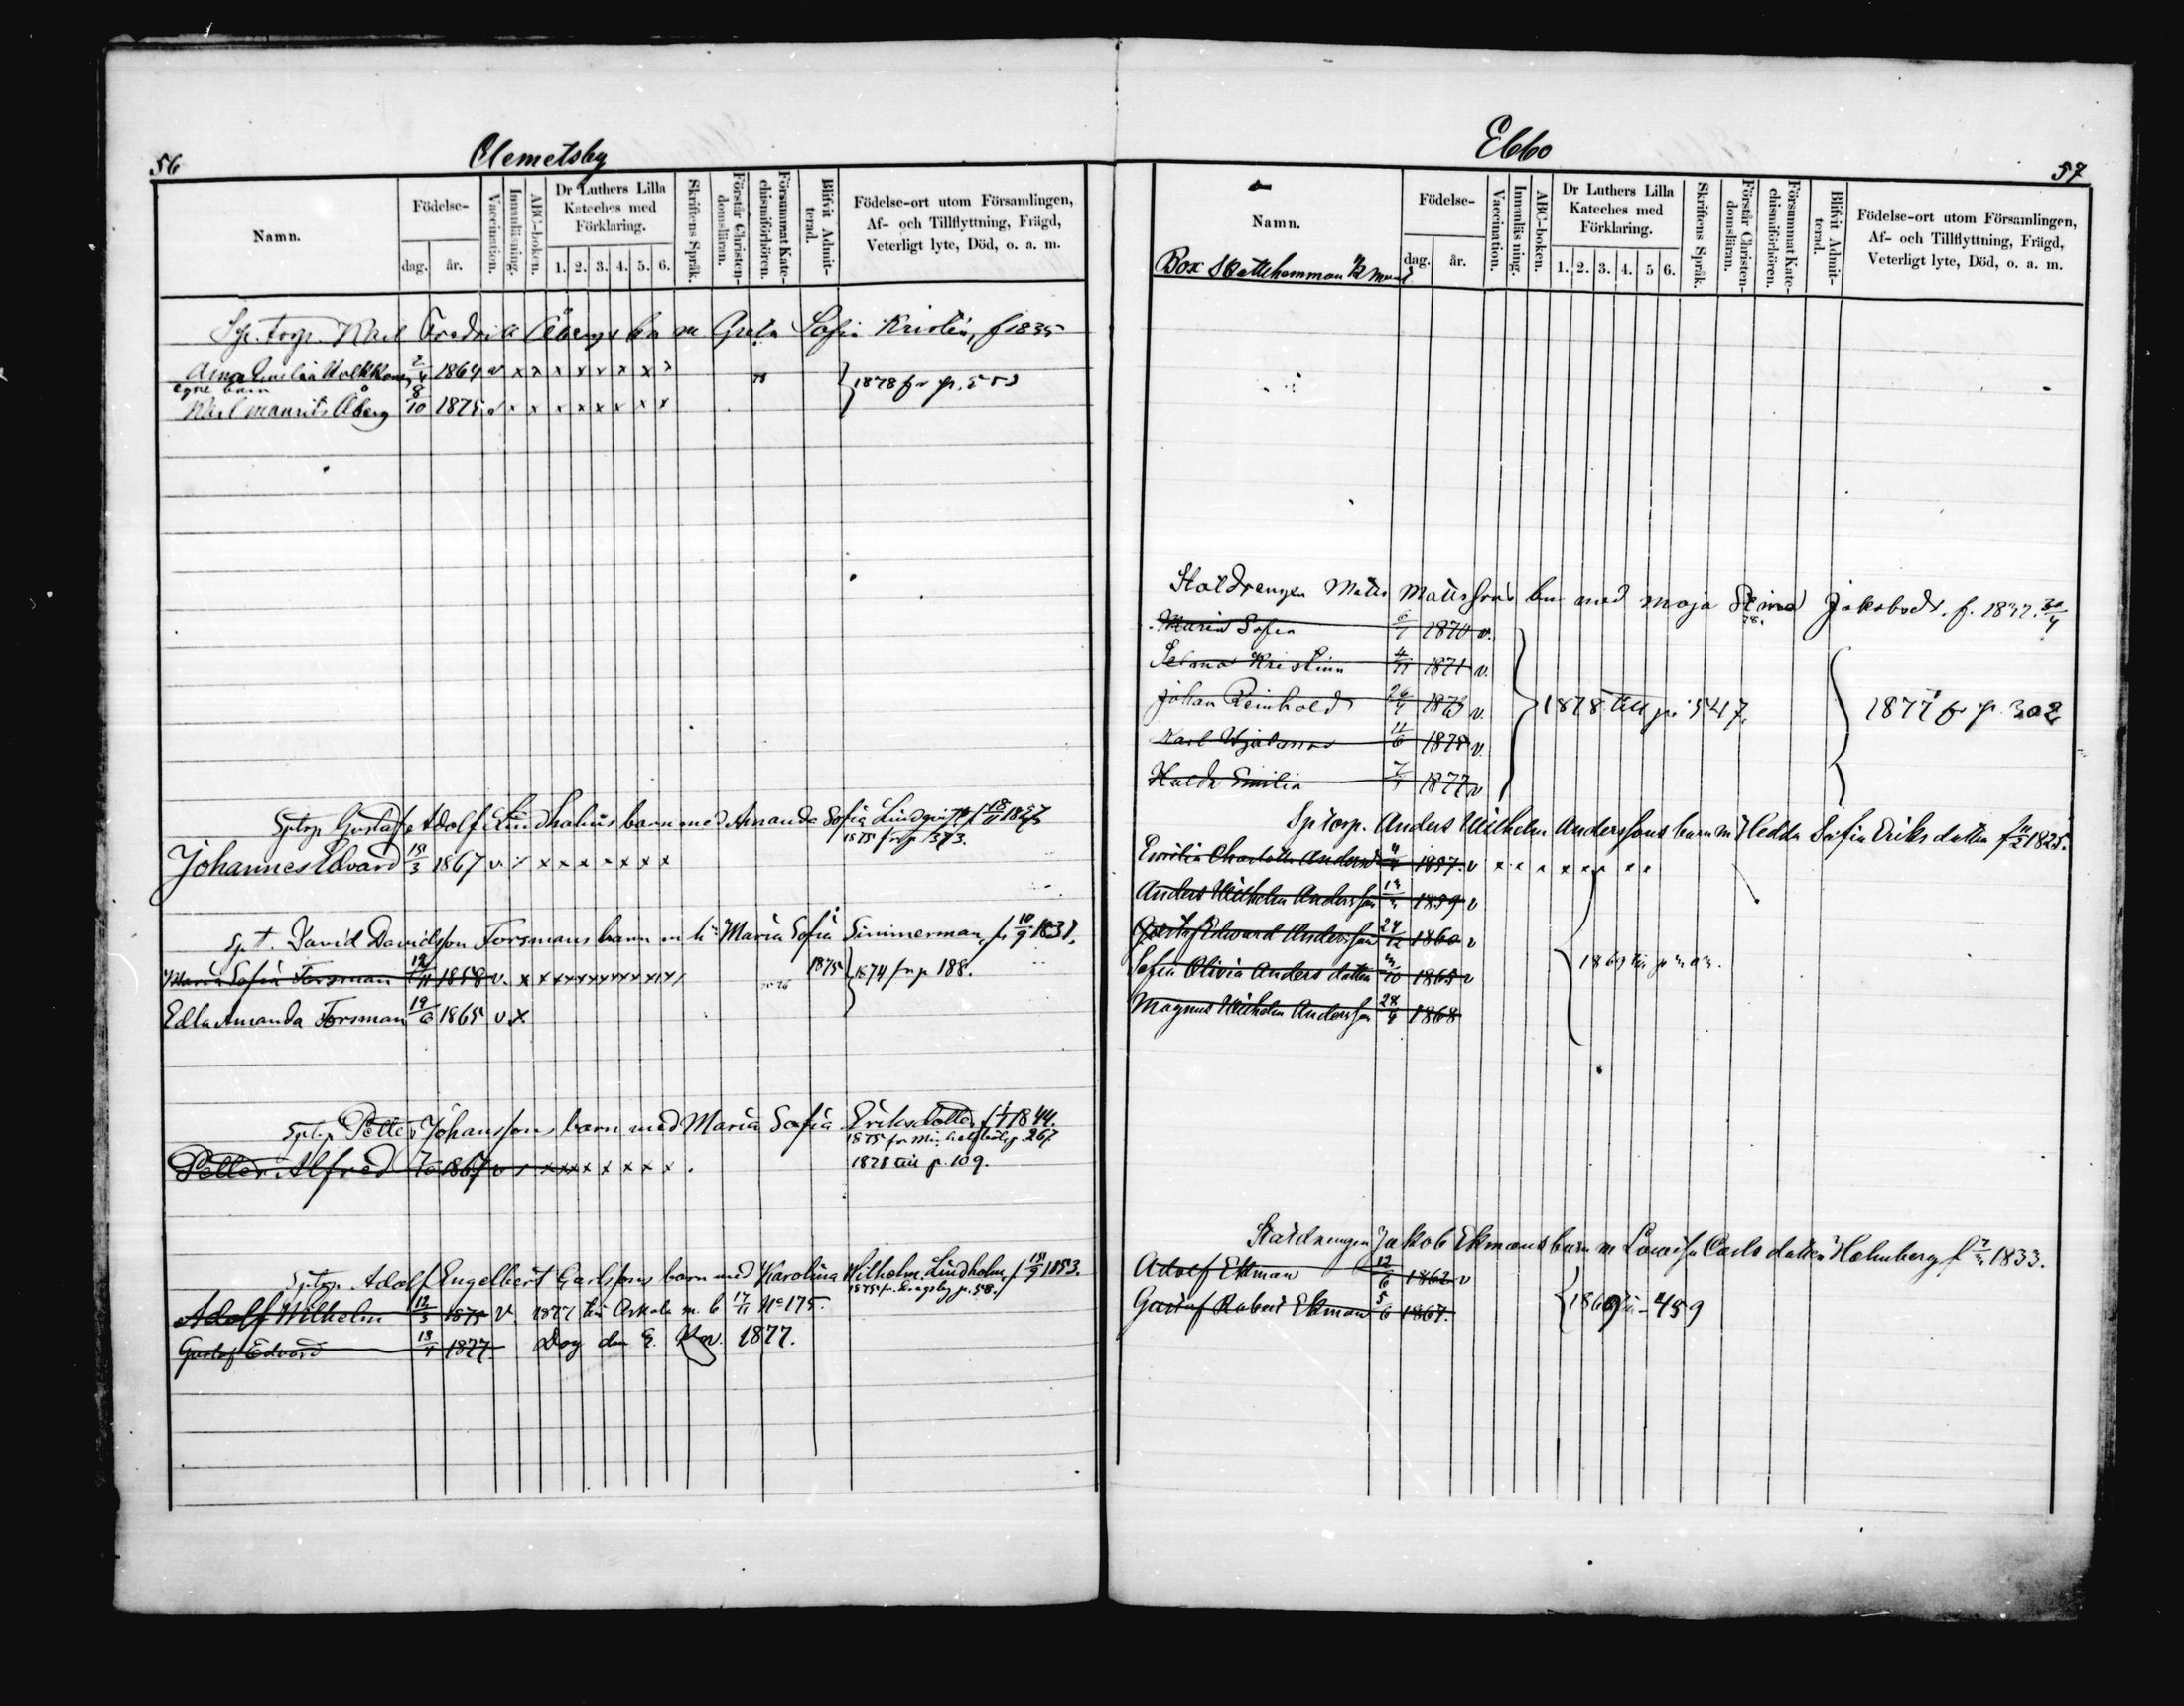 56
Clemetsby
Namn.
Födelse-
dag.
år.
Vaccination.
Innanläsning.
ABC-boken.
Dr Luthers Lilla
Kateches med
Förklaring.
1. 2. 3. 4. 5. 6.
Skriftens Språk.
Förstår Christen-
domsläran.
Försummat Kate-
chismiförhören.
Blifvit Admit-
terad.
Födelse-ort utom Församlingen,
Af- och Tillflyttning, Frägd,
Veterligt lyte, Död, o. a. m.
Sp. torp. Karl Fredrik Åbergs bn m Greta Sofia Kristin, f 1835
1864 v x x x x x x x x 78
egne barn
Karl Maurits Åberg 8/10 1875 v x x x x x x x x
1878 fr p.
Sptrp Gustaf Adolf Lindholms barn med Amanda Sofia Lindqvist f 18/11 1847
1875 fr p 373.
Johannes Edvard 1867 v x x x x x x x x
Sp t. David Davidsson Forsmans barn m h: Maria Sofia Simmerman, f. 10/9 1831.
Maria Sofia Forsman 1858 v. x x x x x x x x x x 1875
1874 fr p 188.
Edla Amanda Forsman 19/6 1865 v x
Sptrp Petter Johanssons barn med Maria Sofia Eriksdotter f 1844.
1875 fr p 267
Petter Alfred 1867 v x x x x x x x x
1878 till p. 109.
Sptrp. Adolf Engelbert Carlssons barn med Karolina Wilhelm. Lindholm, f 1853.
1875 fr. p. 58.
Adolf Wilhelm 12/3 1875 v. 1877 till Askola m. b 17/11 No 175.
Gustaf Edvard 18/1 1877. Dog den 1877.
Ebbo
57
Namn.
Födelse-
dag.
år.
Vaccination.
Innanläsning.
ABC-boken.
Dr Luthers Lilla
Kateches med
Förklaring.
1. 2. 3. 4. 5 6.
Skriftens Språk.
Förstår Christen-
domsläran.
Försummat Kate-
chismiförhören.
Blifvit Admit-
terad.
Födelse-ort utom Församlingen,
Af- och Tillflyttning, Frägd,
Veterligt lyte, Död, o. a. m.
Box Skattehemman 1/2
Staldrengen Matts Mattssons bn med Maja Stina Jakobsdt. f. 1837. 30/4
78.
Maria Sofia 1870 v.
Selma Kristina 4/11 1871 v.
Johan Reinhold 1873 v.
1878 till p. 547.
1877 fr p. 302
Karl Hjalmar 11/6 1875 v.
Hulda Emilia 1877 v
Sp torp. Anders Wilhelm Anderssons barn m Hedda Sofia Eriksdotter f 1825.
Emilia Charlotta Andersd 1857. v x x x x x x x x
Anders Wilhelm Andersson 1859 v
Gustaf Edward Andersson 24/12 1860 v
Sofia Olivia Andersdotter 1865 v
1869 till p 303.
Magnus Wilhelm Andersson 28/9 1868
Staldrengen Jakob Ekmans barn m Lowisa Carlsdotter Holmberg f 1833.
Adolf Ekman 12/6 1862 v
Gustaf Robert Ekman 5/6 1867.
1869 till - 459